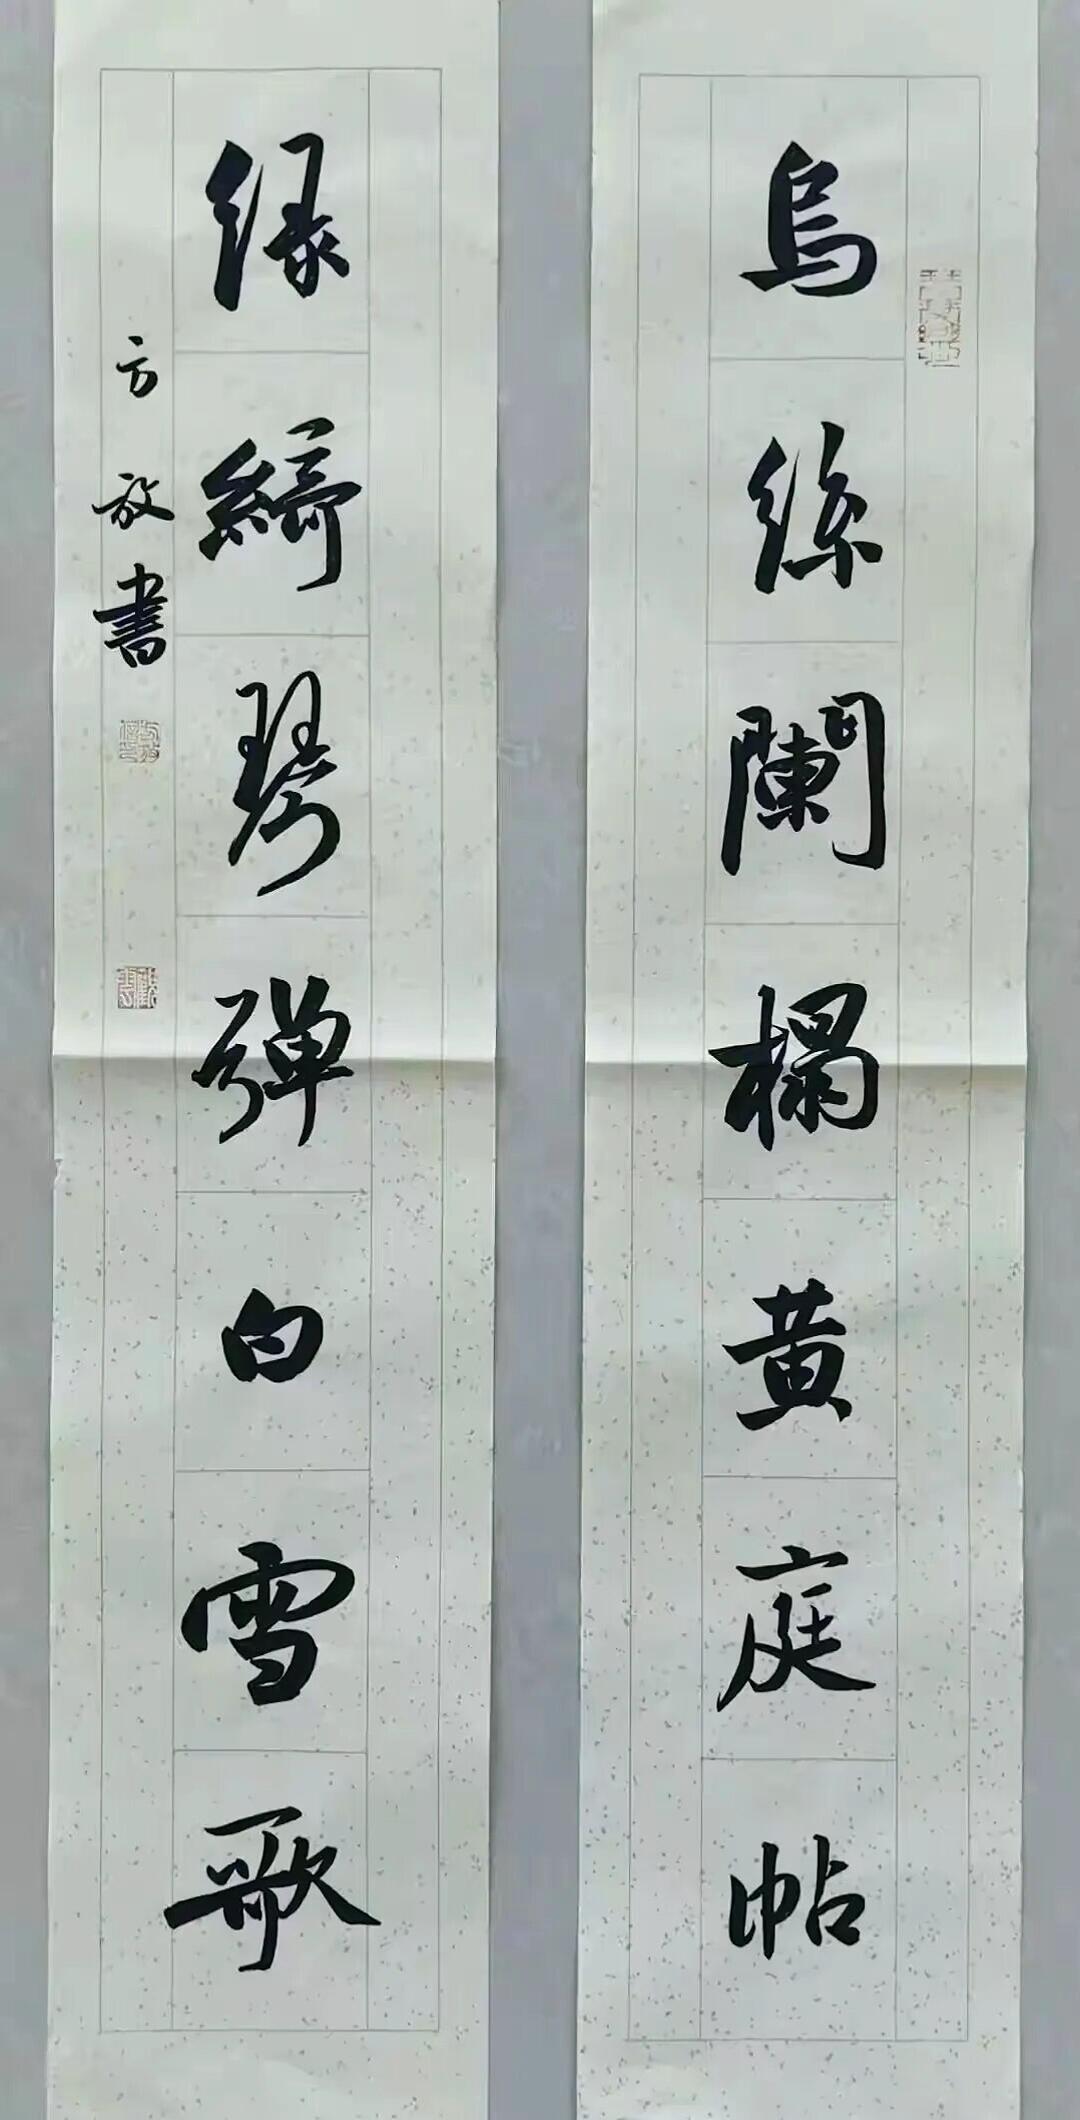 烏絲闌榻黄庭帖
綠綺琴彈白雪歌
方放書